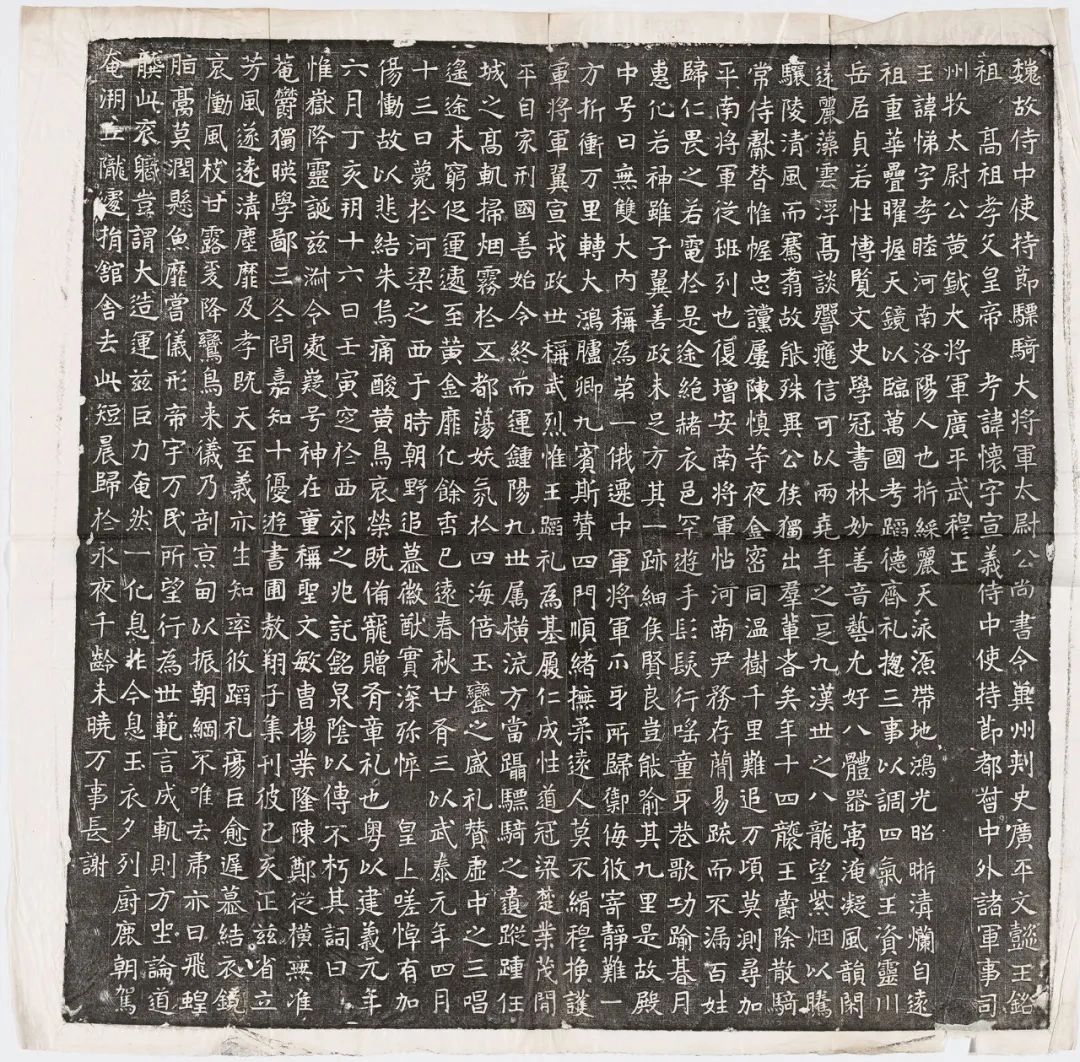 魏故侍中使持節驃騎大將軍太尉公尚書令冀州刾史廣平文懿王銘
祖 高祖孝文皇帝 考諱懷字宣義侍中使持節都督中外諸軍事司
州牧太尉公黃鉞大將軍廣平武穆王
王諱悌字孝睦河南洛陽人也折綵麗天泳源帶地鴻光昭晣清爛自遠
祖重華疊曜握天鏡以臨萬國考蹈德齊礼摠三事以調四氣王資靈川
岳居貞若性博覽文史學冠書林妙善音藝尤好八體器寓淹凝風韻閑
遠麗藻雲浮髙談響應信可以兩堯年之二九漢世之八龍望紫烟以騰
驤陵清風而騫翥故能殊異公族獨出羣輩者矣年十四襲王爵除散騎
常侍獻替惟幄忠讜屢陳慎等夜金密同溫樹千里難追万頃莫測尋加
平南將軍從班列也復增安南將軍怗河南尹務存簡易疏而不漏百姓
歸仁畏之若電於是途絕赭衣邑罕遊手髟髮行謡童牙巷歌功踰朞月
惠化若神雖子翼善政未足方其一跡細侯賢良豈能踰其九里是故殿
中号曰無雙大內稱為第一俄遷中軍將軍爪牙所歸禦侮攸寄靜難一
方折衝万里轉大鴻臚卿九賓斯贊四門順緒撫柔遠人莫不緝穆换護
軍將軍翼宣戎政世稱武烈惟王蹈礼為基履仁成性道冠梁楚業茂間
平自家刑國善始令終而運鍾陽九世属橫流方當躡驃騎之遺蹤踵任
城之髙軌掃烟霧於五都蕩妖氛於四海倍玉鑾之盛礼贊虛中之三唱
遙途未窮促運遽至黃金靡化餘香已遠春秋廿有三以武泰元年四月
十三日薨於河梁之西于時朝野追慕徽猷實深弥悴 皇上嗟悼有加
傷慟故以悲結朱鳥痛酸黃鳥哀榮既備寵贈有章礼也粵以建義元年
六月丁亥玥十六日壬寅窆於西郊之兆託銘泉陰以傳不朽其詞曰
惟嶽降靈誕兹渊令處嶷号神在童稱聖文敏曹楊業隆陳鄭從橫無准
菴欝獨暎學鄙三冬問嘉知十優遊書圃敖翔子集刊彼己亥正兹省立
芳風遂遠清塵靡及孝既天至義亦生知率攸蹈礼揚巨愈遲慕結衣鏡
哀慟風枝甘露夌降鸞鳥来儀乃剖京甸以振朝綱不唯去肅亦曰飛蝗
脂髙莫潤懸魚靡嘗儀形帝宇万民所望行為世範言成軌則方坐論道
襲此衮軄豈謂大造運兹巨力奄然一化息非今息玉衣夕列廚鹿朝駕
奄溯丘隴遽捐舘舍去此短晨歸於永夜千齡未曉万事長謝